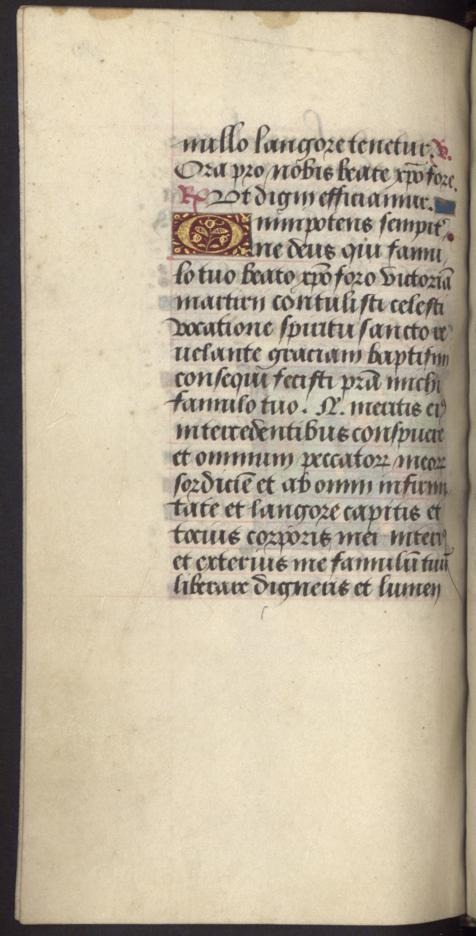 nullo langore tenetur. V.
Ora pro nobis beate xpõfore.
R. Ut digni efficiamur.
Omnipotens sempit᷒
ne deus qui famu
lo tuo beato xpõforo victoriã
martirii contulisti celesti
vocatione spiritu sancto re
uelante graciam baptismi
consequi fecisti prã michi
famulo tuo. N. meritis ei᷒
intercedentibus
et omnium peccatoꝝ meoꝝ
sordiciẽ et ab omni infirmi
tate et langore capitis et
tocius corporis mei interi᷒
et exterius me famulũ tuũ
liberare digneris et lumen